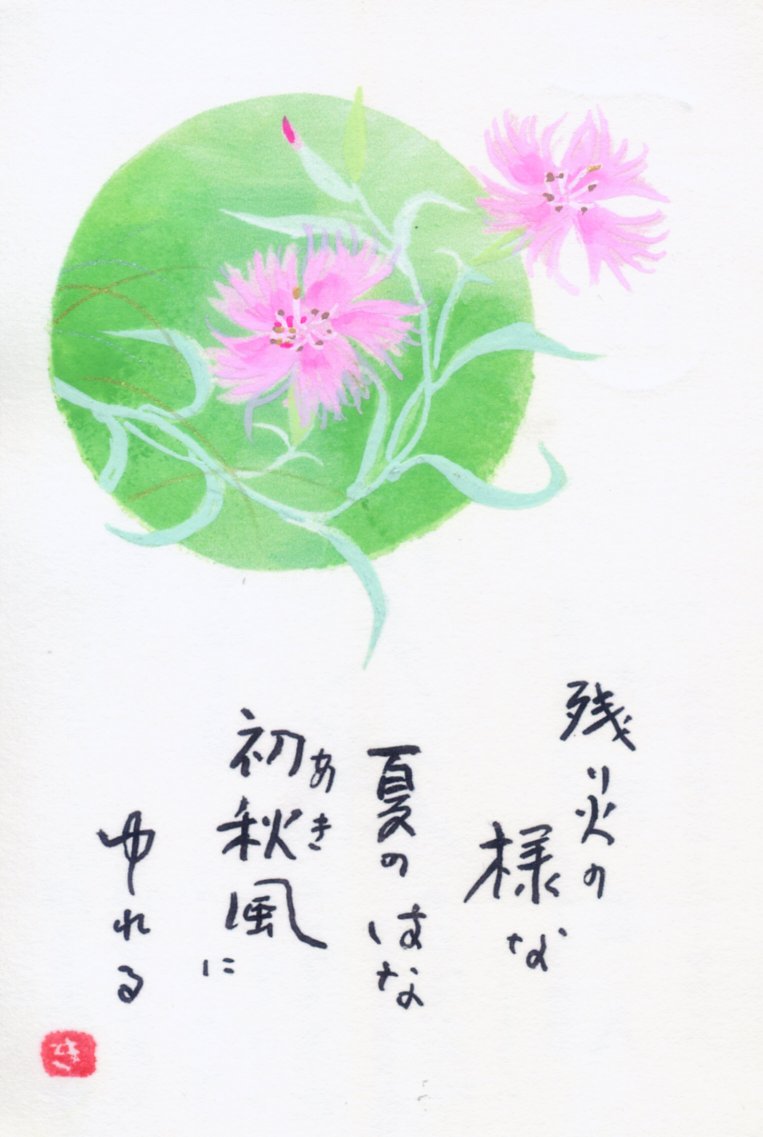 残り火の
様な
夏のはな
初秋風に
あき
ゆれる
き